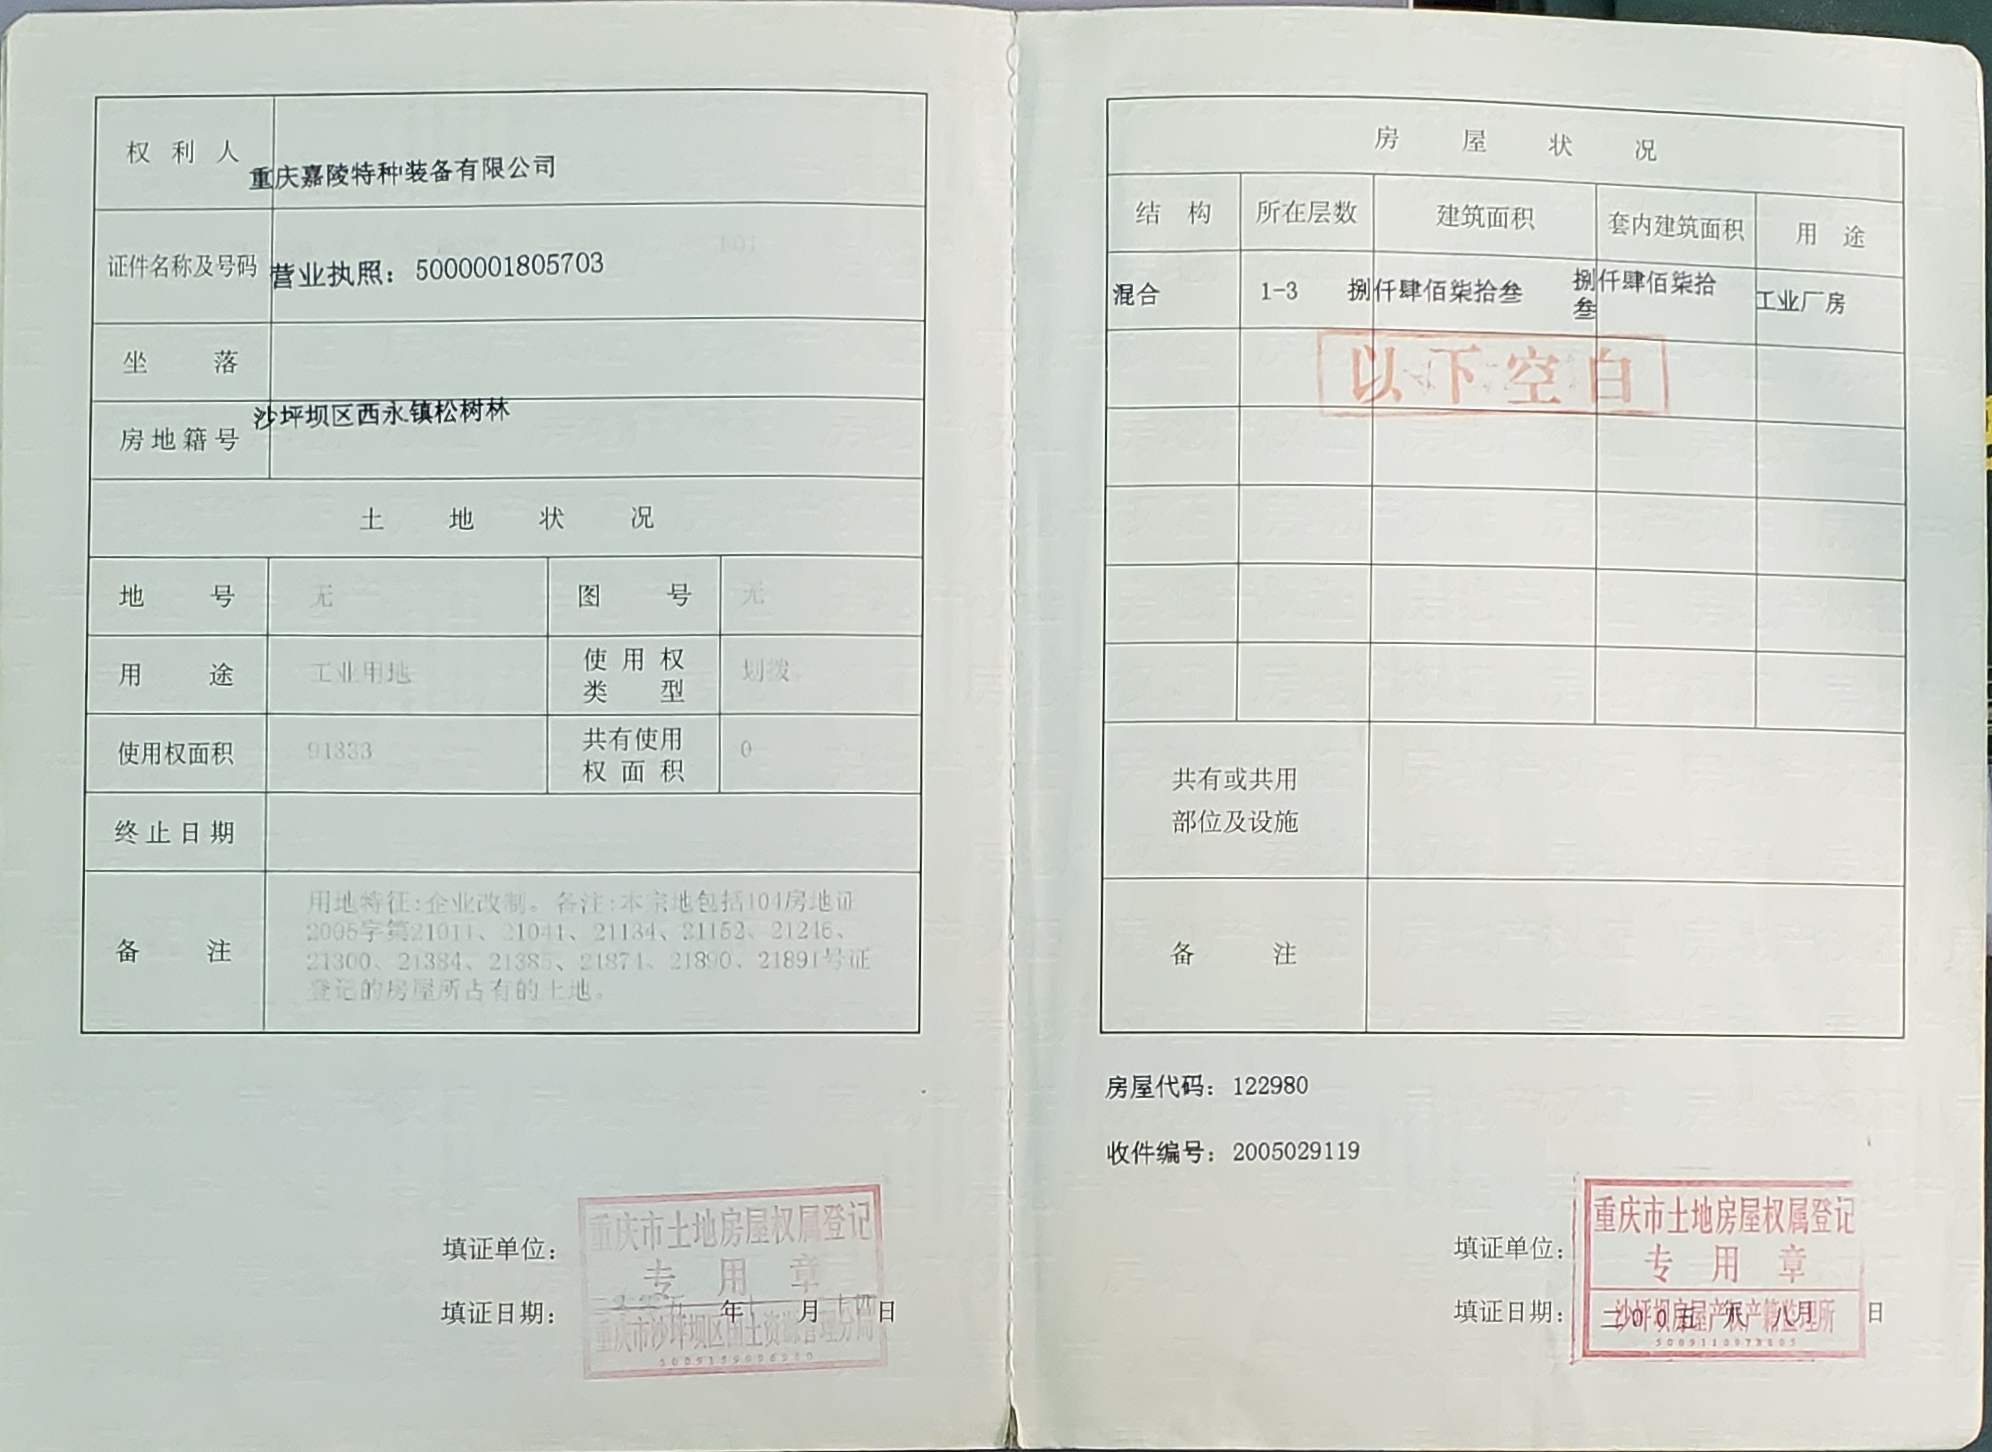 权利人 重庆嘉陵特种装备有限公司
证件名称及号码 营业执照：5000001805703
坐落
沙坪坝区西永镇松树林
房地籍号
土地状况
地号 无 图号 无
用途 工业用地 使用权类型 划拨
使用权面积 91333 共有使用权面积 0
终止日期
备注 用地特征:企业改制。备注:本宗地包括104房地证
2005字第21011、21041、21134、21152、21246、
21300、21384、21385、21874、21890、21891号证
登记的房屋所占有的土地。
填证单位：
重庆市土地房屋权属登记
专用章
填证日期： 年 月 日
重庆市沙坪坝区国土资源管理分局
房屋状况
结构 所在层数 建筑面积 套内建筑面积 用途
混合 1-3 捌仟肆佰柒拾叁 捌仟肆佰柒拾叁 工业厂房
以下空白
共有或共用
部位及设施
备注
房屋代码：122980
收件编号：2005029119
填证单位：
重庆市土地房屋权属登记
专用章
填证日期： 二00五 年 八月 日
沙坪坝房屋产权产籍监理所